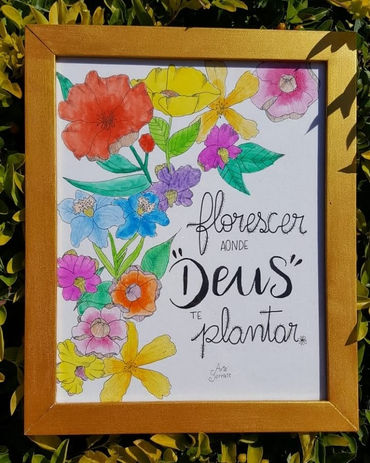 florescer
AONDE
"DEUS"
TE
plantar
Arte